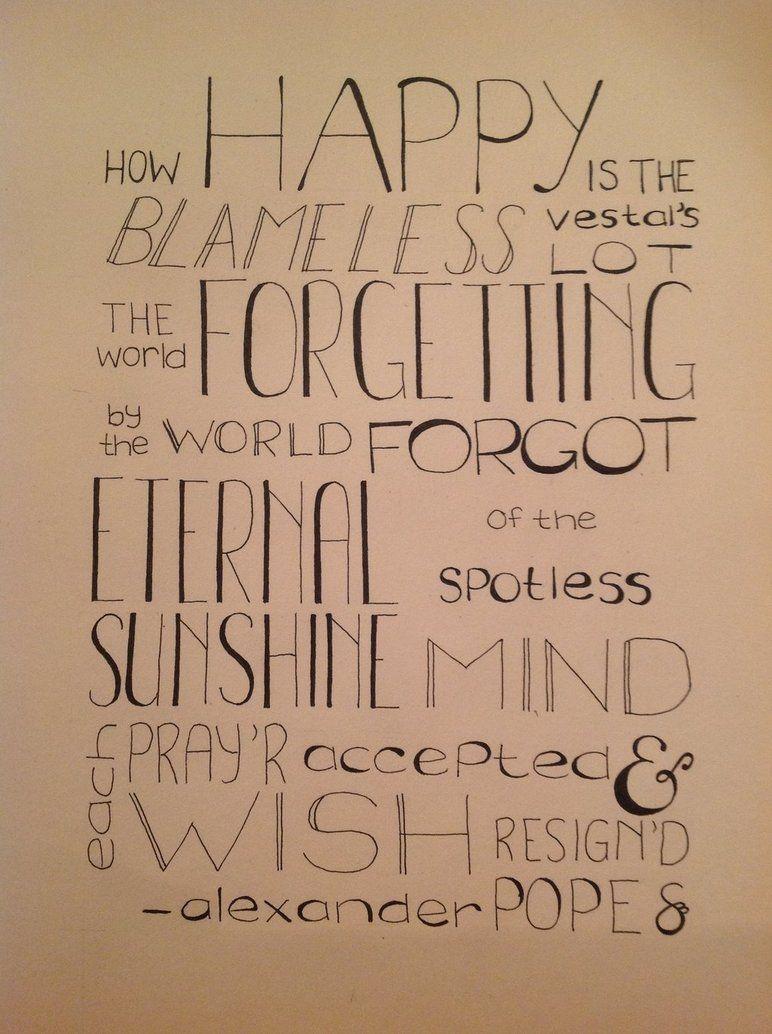 HOW HAPPY IS THE
BLAMELESS vestal's LOT
THE world FORGETTING
by the WORLD FORGOT
ETERNAL
SUNSHINE
of the
spotless
MIND
each PRAY'R accepted &
WISH RESIGN'D
-alexander POPE &